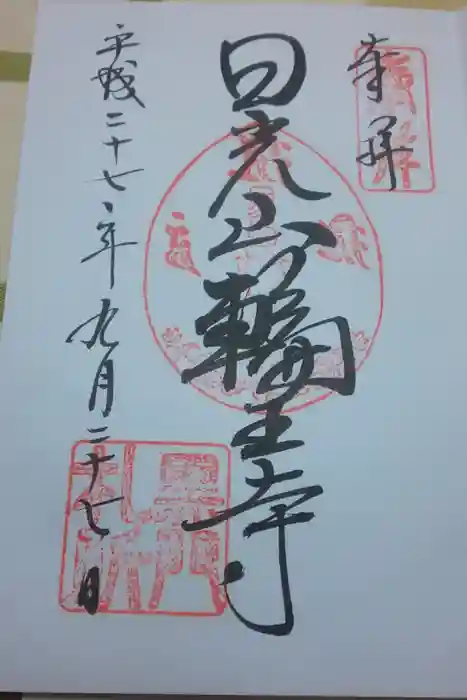 奉拝
日光山輪王寺
平成二十七年九月二十七日